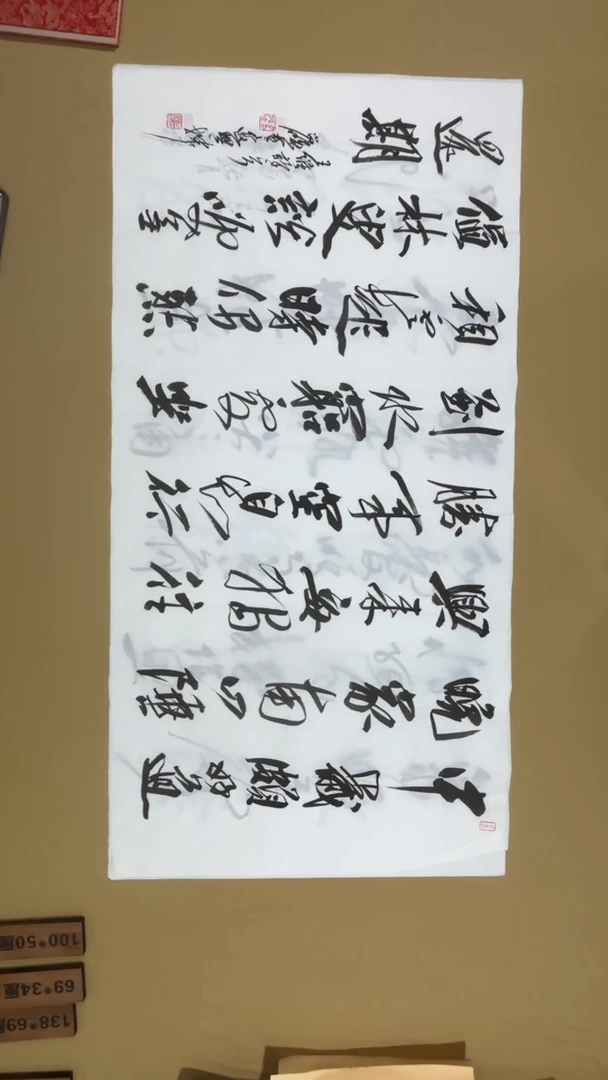 中歲頗好道
晚家南山陲
興來每獨往
勝事空自知行
到水窮處坐
看雲起時偶然
值林叟談笑無
還期
王維詩
100*50
69*34
138*69